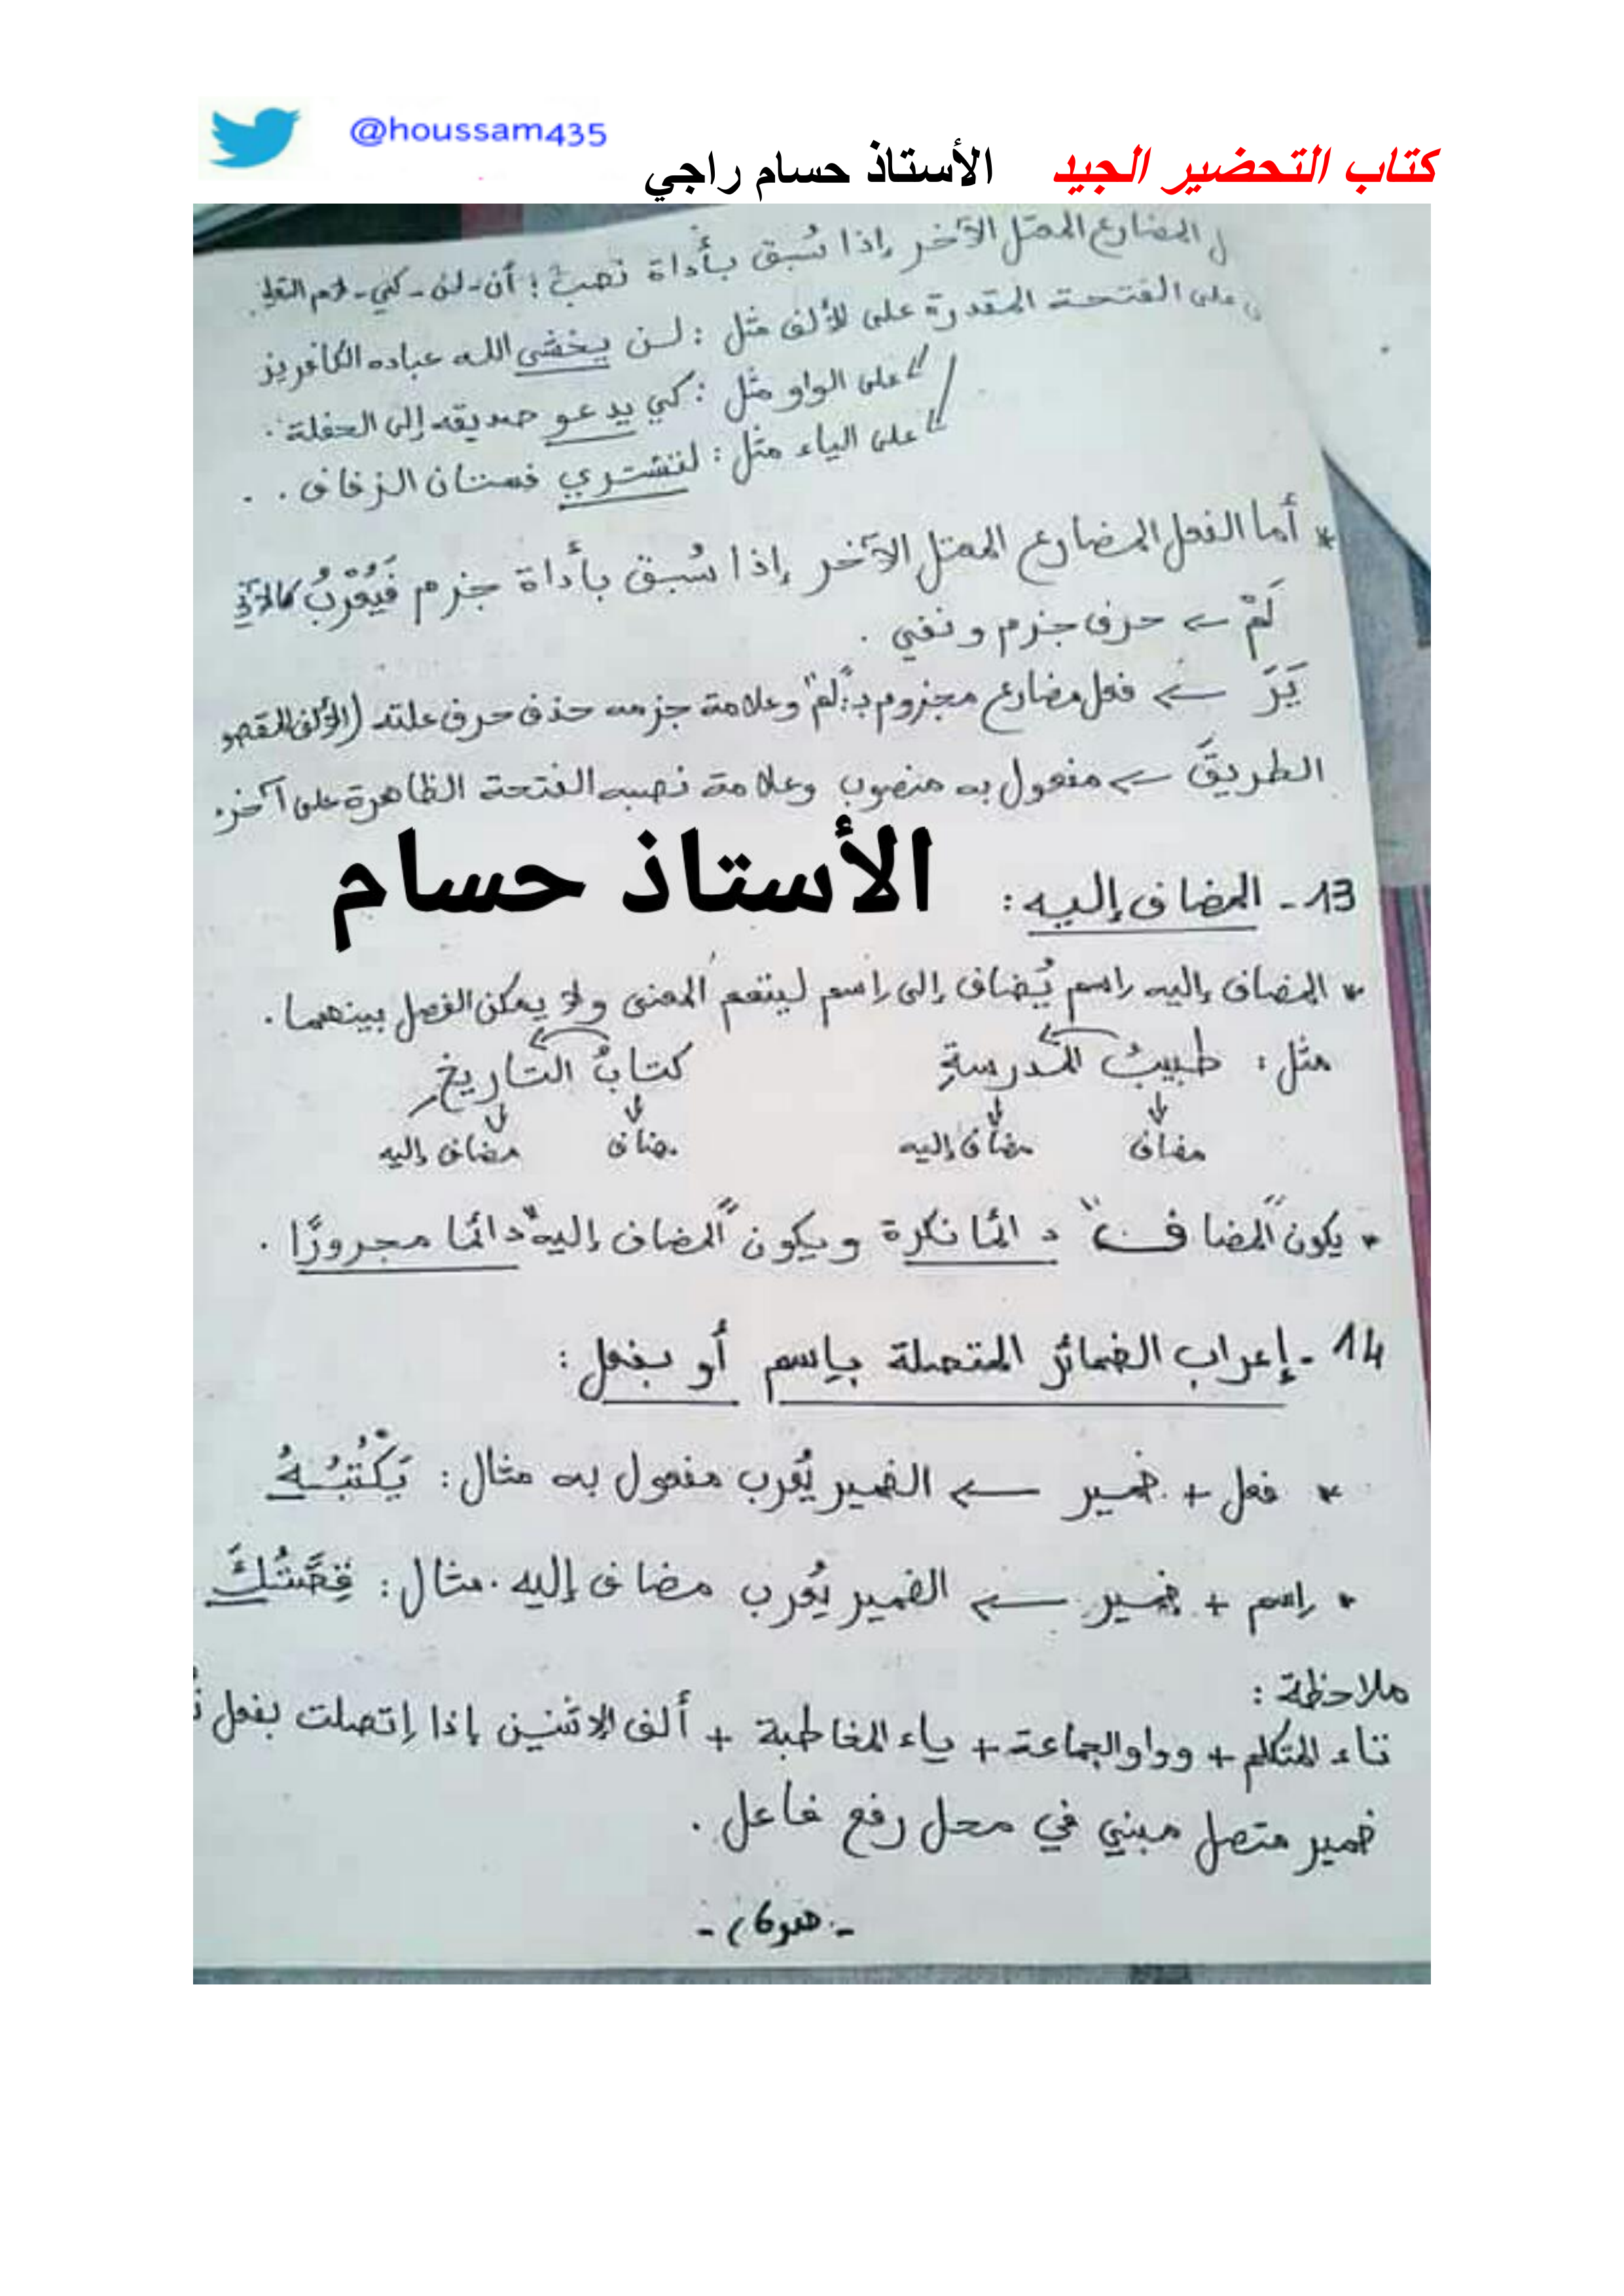 @houssam435
كتاب التحضير الجيد الأستاذ حسام راجي
المضارع المعتل الآخر إذا سُبق بأداة نصب : أن - لن - كي - لام
على الفتحة المقدرة على الألف مثل : لن يخشى الله عباده الكافرين
على الواو مثل : كي يدعو صديقه إلى الحفلة .
على الياء مثل : لنشتري فستان الزفاف . .
* أما الفعل المضارع المعتل الآخر إذا سُبق بأداة جزم فَيُعْرَبُ كالآتي
لَمْ ← حرف جزم و نفي .
يَرَ ← فعل مضارع مجزوم بـ: "لم" وعلامة جزمه حذف حرف علته (الألف
الطريقَ ← مفعول به منصوب وعلامة نصبه الفتحة الظاهرة على آخره
الأستاذ حسام
13 - المضاف إليه :
* المضاف إليه إسم يُضاف إلى إسم ليتضح المعنى ولا يمكن الفصل بينهما .
مثل : طبيبُ المدرسةِ كتابُ التاريخِ
مضاف مضاف إليه مضاف مضاف إليه
* يكون "المضاف" دائما نكرة ويكون "المضاف إليه" دائما مجرورًا .
14 - إعراب الضمائر المتصلة بإسم أو بفعل :
* فعل + ضمير ← الضمير يُعرب مفعول به مثال : يَكْتُبُهُ
* إسم + ضمير ← الضمير يُعرب مضاف إليه . مثال : قِصَّتُكَ
ملاحظة :
تاء المتكلم + وواو الجماعة + ياء المخاطبة + ألف الإثنين إذا إتصلت بفعل
ضمير متصل مبني في محل رفع فاعل .